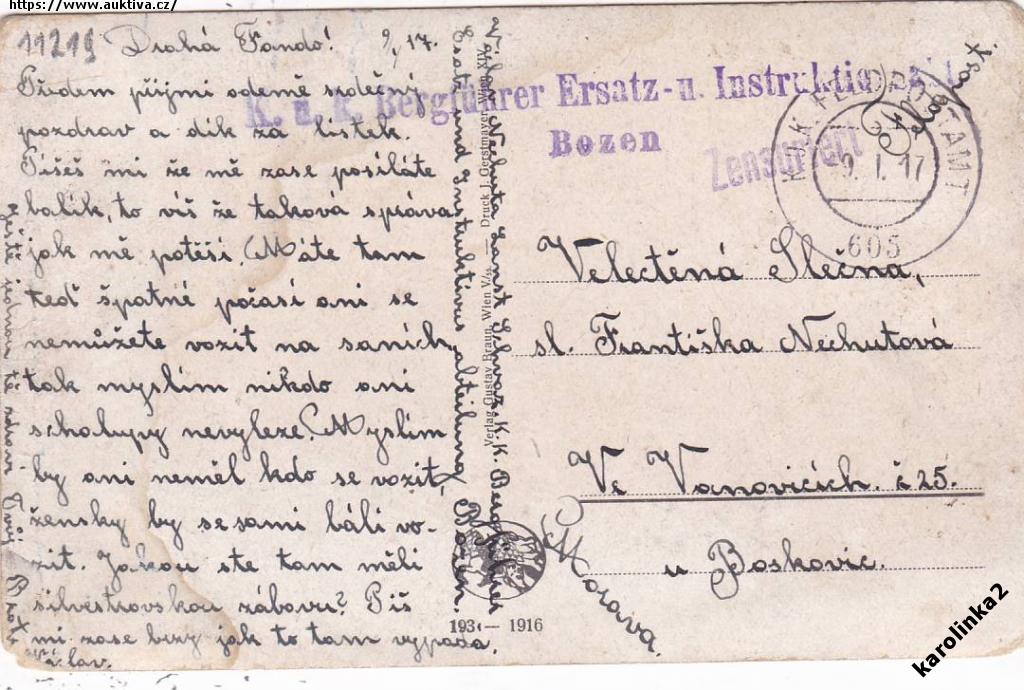 https://www.auktiva.cz/
11219
Drahá Fando! 9/1 17.
Předem přijmi odemě srdečný
pozdrav a dík za lístek.
Píšeš mi že mě zase posíláte
balík, to víš že taková správa
jak mě potěší. Máte tam
teď špatné počasí ani se
nemůžete vozit na saních,
tak myslím nikdo ani
schalupy nevyleze. Myslím
by ani neměl kdo se vozit,
ženský by se sami báli vo-
zit. Jakou ste tam měli
silvestrovskou zábavu? Piš
mi zase brzy jak to tam vypadá.
ještě jednou tě zdraví Tvůj Bratr
Václav.
Václav Nechuta Lanst. Schvaz. K.K. Bergführer
Ersatz und Instruktivus abteilung Bozen.
Verlag Gustav Braun, Wien V/2. — Druck J. Gerstmayer, Wien
1931 — 1916
K. u. k. Bergführer Ersatz- u. Instruktio
Bozen
Zensuriert
K.u.K. FELDPOSTAMT
9. I. 17
605
Feldpost.
Velectěná Slečna,
sl. Františka Nechutová
Ve Vanovicích. č 25.
u Boskovic.
Morava.
karolinka2